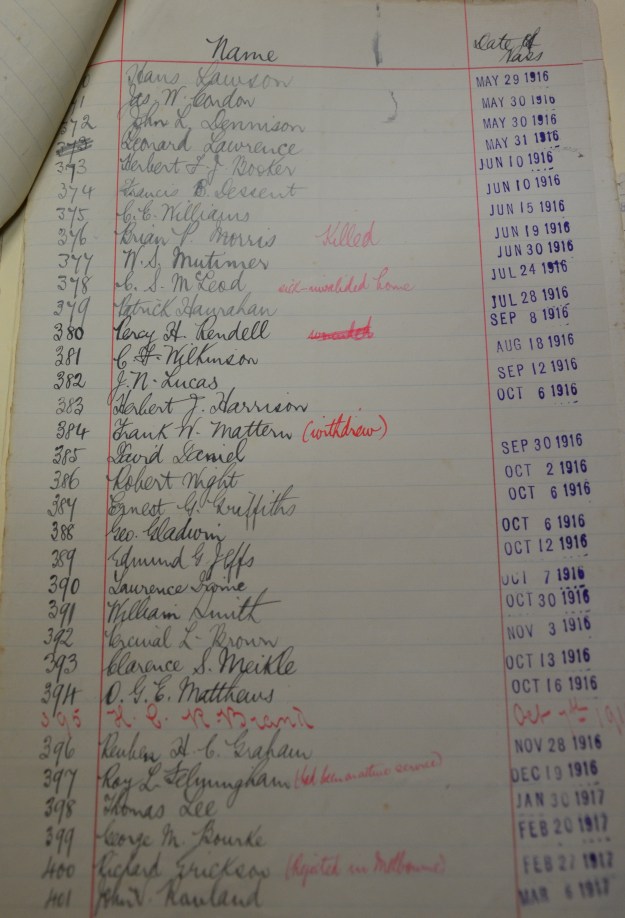 Name Date of Pass
Hans Lawson MAY 29 1916
Jas. W. Condon MAY 30 1916
372 John L. Dennison MAY 30 1916
Leonard Lawrence MAY 31 1916
373 Herbert F. J. Booker JUN 10 1916
374 Francis B. Descent JUN 10 1916
375 C. C. Williams JUN 15 1916
376 Brian P. Morris Killed JUN 19 1916
377 W. S. Mutimer JUN 30 1916
378 C. S. McLeod sick-invalided home JUL 24 1916
379 Patrick Hanrahan JUL 28 1916
380 Percy H. Kendell SEP 8 1916
381 C. H. Wilkinson AUG 18 1916
382 J. N. Lucas SEP 12 1916
383 Herbert J. Harrison OCT 6 1916
384 Frank W. Mattern (withdrew)
385 David Daniel SEP 30 1916
386 Robert Wight OCT 2 1916
387 Ernest G. Griffiths OCT 6 1916
388 Geo. Gladwin OCT 6 1916
389 Edmund G Jeffs OCT 12 1916
390 Laurence OCT 7 1916
391 William Smith OCT 30 1916
392 L. Brown NOV 3 1916
393 Clarence S. Meikle OCT 13 1916
394 O. G. E. Matthews OCT 16 1916
395 H. C. R Brand Oct
396 Reuben H. C. Graham NOV 28 1916
397 Roy L. (had been on active service) DEC 19 1916
398 Thomas Lee JAN 30 1917
399 George M. Bourke FEB 20 1917
400 Richard Erickson (Rejected in Melbourne) FEB 27 1917
401 John V. Rowland MAR 6 1917